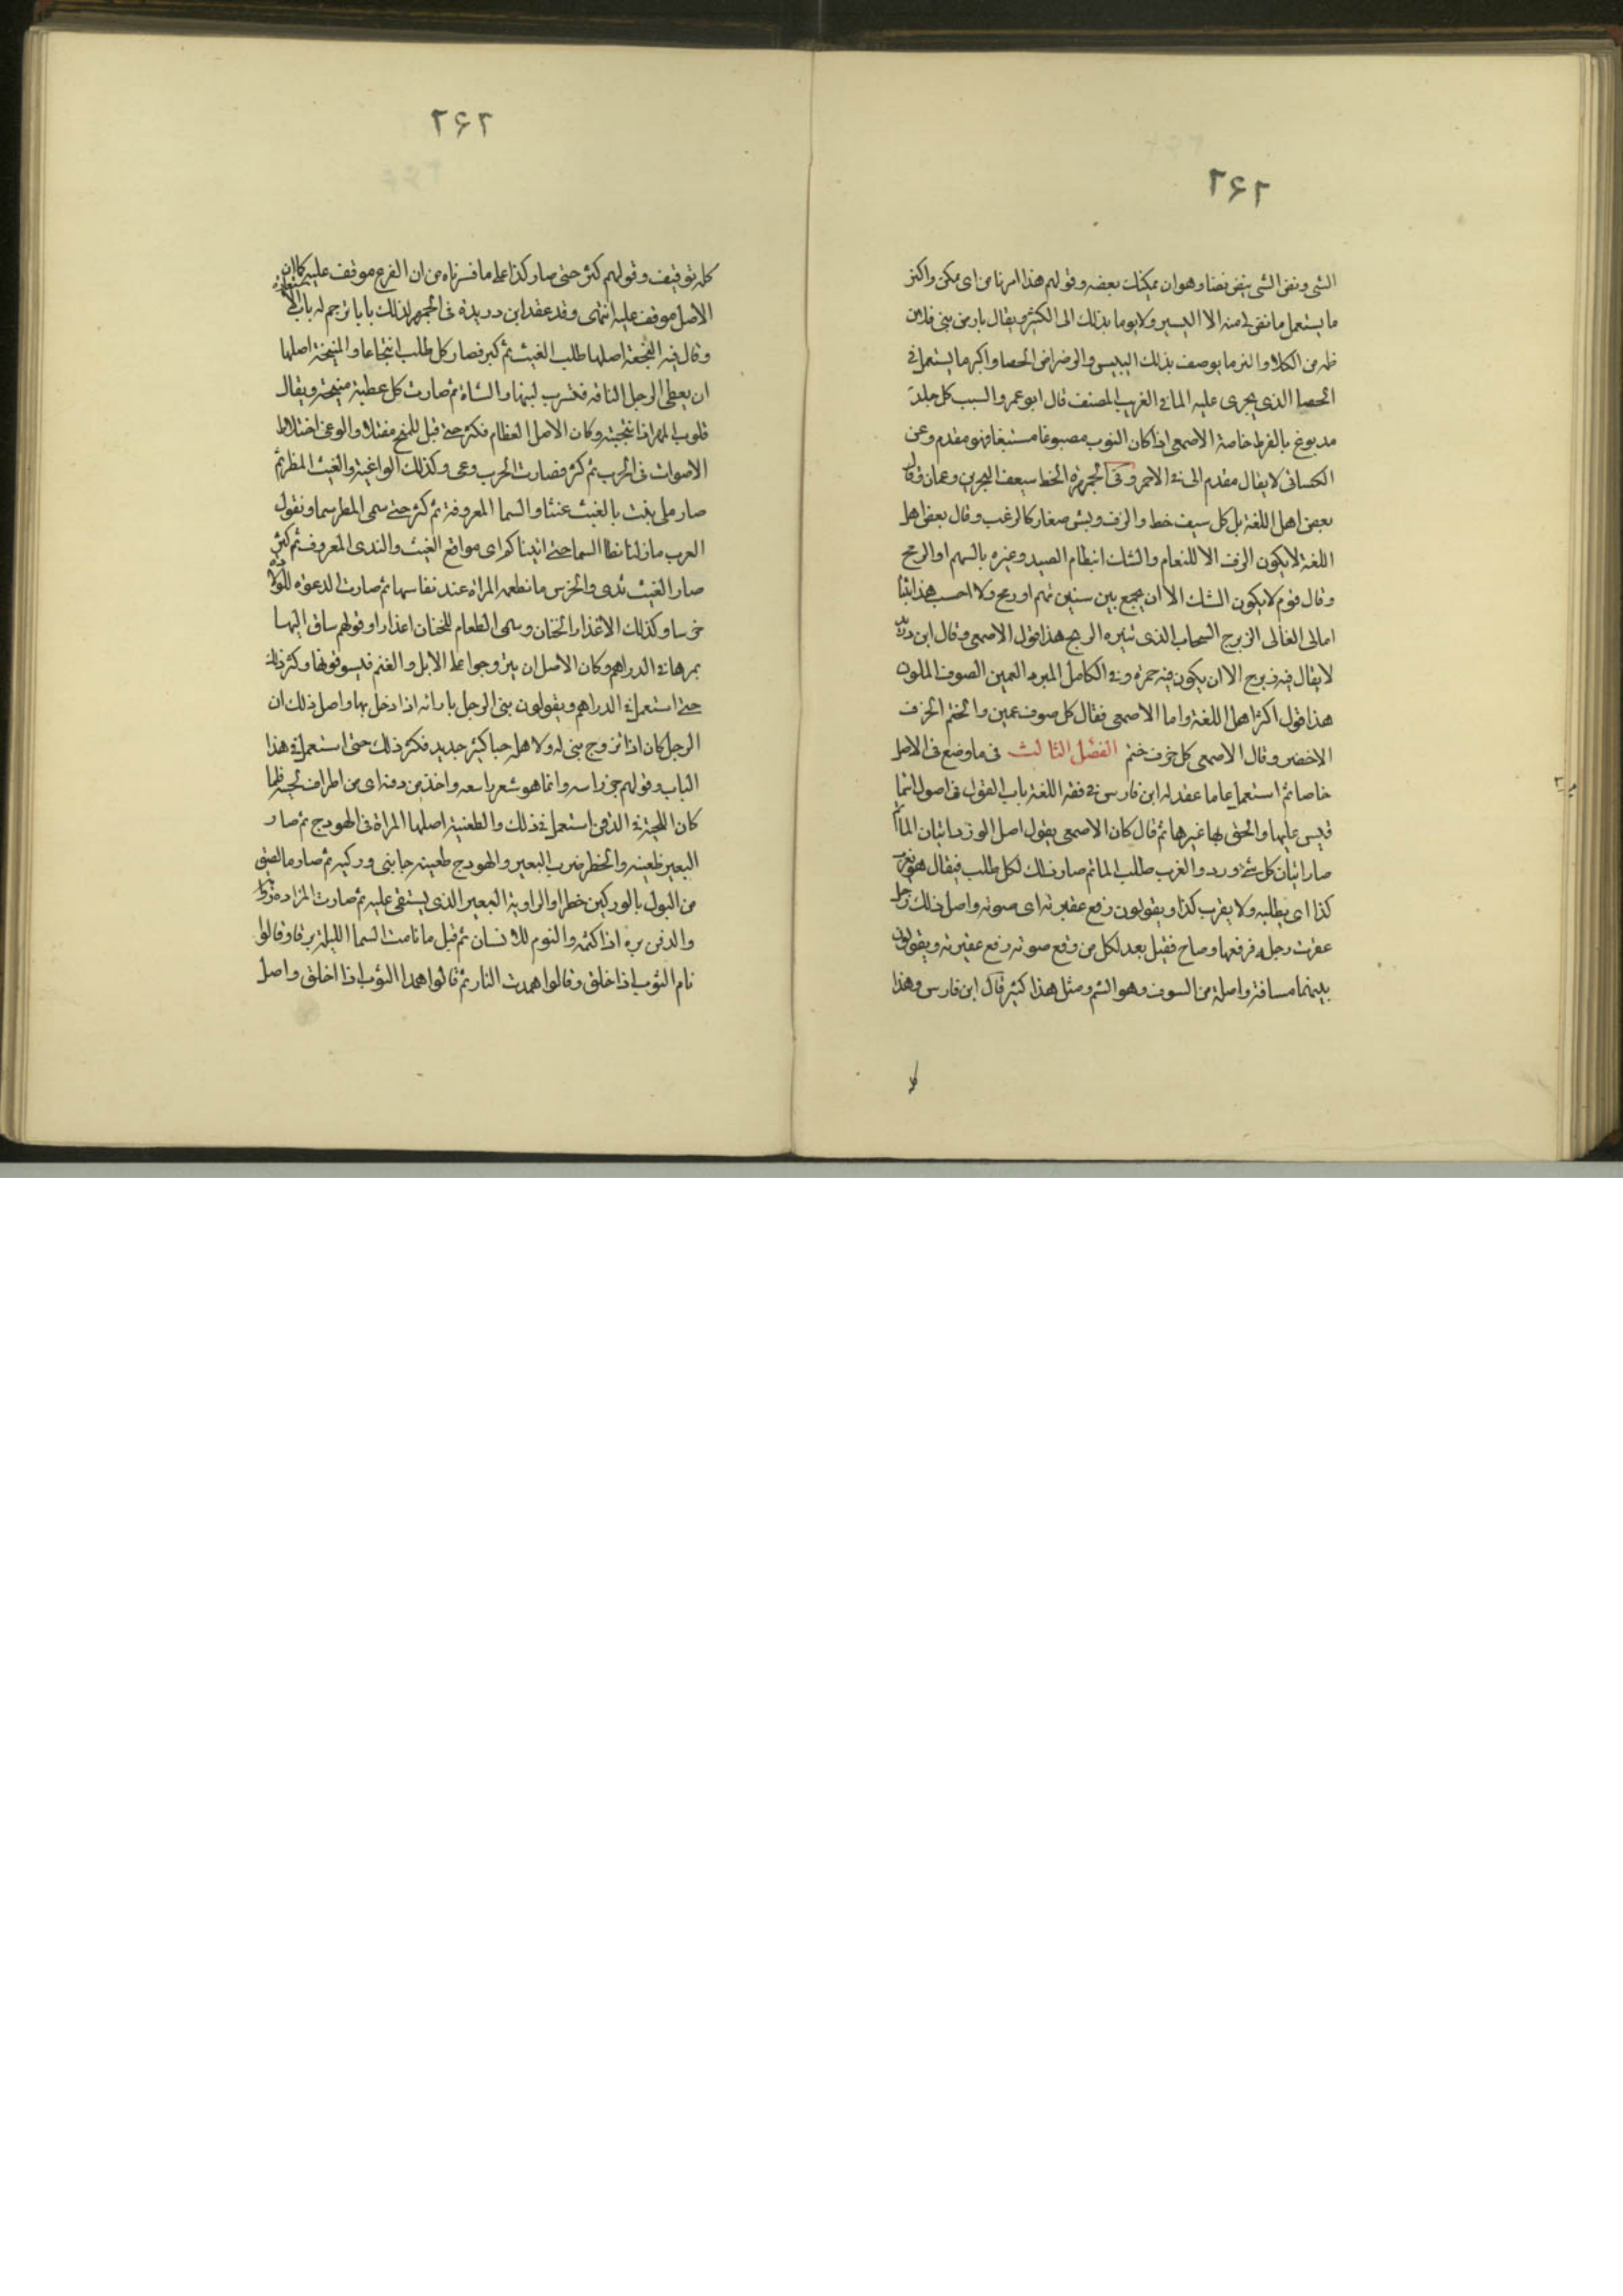 ٢٦٢
الشى ونض الشى ينض نضا وهو ان يمكنك بعضه وقولهم هذا امر ناض اى ممكن واكثر
ما يستعمل ما نض لى منه الا اليسير ولا يوما بذلك الى الكثير ويقال بارض بنى فلان
من الكلا واكثر ما يوصف بذلك اليبيس والرضراض الحصا واكثر ما يستعمل فى
الحصا الذى يجرى عليه الما فى الغريب المصنف قال ابو عمرو السبت كل جلد
مدبوغ بالقرظ خاصة الاصمعى اذا كان الثوب مصبوغا مشبعا فهو مقدم وعن
الكسائى لا يقال مقدم الى فى الاحمر وفى الجمهرة الخط سيف البحرين وعمان وقال
بعض اهل اللغة بل كل سيف خط والزف ريش صغار كالزغب وقال بعض اهل
اللغة لا يكون الزف الا للنعام والشك انتظام الصيد وغيره بالسهم او الرمح
وقال قوم لا يكون الشك الا ان يجمع بين شيئين بسهم او رمح ولا احسب هذا ثبتا
امالى القالى الزبرج السحاب الذى تسفره الريح هذا قول الاصمعى وقال ابن دريد
لا يقال فيه زبرج الا ان يكون فيه حمرة وفى الكامل للمبرد العهن الصوف الملون
هذا قول اكثر اهل اللغة واما الاصمعى فقال كل صوف عهن والحنتم الخزف
الاخضر وقال الاصمعى كل خزف حنتم الفصل الثالث فى ما وضع فى الاصل
خاصا ثم استعمل عاما عقد له ابن فارس فى فقه اللغة باب القول فى اصول اسما
قيس عليها والحق بها غيرها ثم قال كان الاصمعى يقول اصل الورد اتيان الما ثم
صار اتيان كل شى وردا والقرب طلب الما ثم صار ذلك لكل طلب فيقال هو يقرب
كذا اى يطلبه ولا يقرب كذا ويقولون رفع عقيرته اى صوته واصل ذلك رجل
عقرت رجله فرفعها وصاح فقيل بعد لكل من رفع صوته رفع عقيرته ويقولون
بينهما مسافة واصله من السوف وهو الشم ومثل هذا كثير قال ابن فارس وهذا
٢٦٢
كله توقيف وقولهم كثر حتى صار كذا على ما فسرناه من ان الفرع موقف عليه كما ان
الاصل موقف عليه انتهى وقد عقد ابن دريد فى الجمهرة لذلك بابا ترجم له باب الاستعارات
وقال فيه النجعة اصلها طلب الغيث ثم كثر فصار كل طلب انتجاعا والمنيحة اصلها
ان يعطى الرجل الناقة فيشرب لبنها والشاة ثم صارت كل عطية منيحة ويقال
فلوت المهر اذا نتجته وكان الاصل الفطام فكثر حتى قيل للمنتج مفتلا والوغى اختلاط
الاصوات فى الحرب ثم كثر فصارت الحرب وغى وكذلك الواغية والغيث المطر ثم
صار ما ينبت بالغيث غيثا والسما المعروفة ثم كثر حتى سمى المطر سما وتقول
العرب ما زلنا نطا السما حتى اتيناكم اى مواقع الغيث والندى المعروف ثم كثر حتى
صار الغيث ندى والخرس ما تطعمه المراة عند نفاسها ثم صارت الدعوة للولادة
خرسا وكذلك الاعذار الختان وسمى الطعام للختان اعذارا وقولهم ساق اليها
مهرها فى الدراهم وكان الاصل ان يتزوجوا على الابل والغنم فيسوقونها وكثر ذلك
حتى استعمل فى الدراهم ويقولون بنى الرجل بامراته اذا دخل بها واصل ذلك ان
الرجل كان اذا تزوج بنى له ولاهله خبا جديد فكثر ذلك حتى استعمل فى هذا
الباب وقولهم جز راسه وانما هو شعر راسه واخذ من دقنه اى من اطراف لحيته فلما
كان اللحية فى الذقن استعمل فى ذلك والظعينة اصلها المراة فى الهودج ثم صار
البعير ظعينه والهودج ظعينه والخطر ضرب البعير جانبى وركيه ثم صار ما لصق
من البول بالوركين خطرا والراوية البعير الذى يستقى عليه ثم صارت المزادة راوية
والدفن اذا كتمه والنوم للانسان ثم قيل ما نامت السما الليلة برقا وقالوا
نام الثوب اذا اخلق وقالوا همدت النار ثم قالوا همد الثوب اذا اخلق واصل